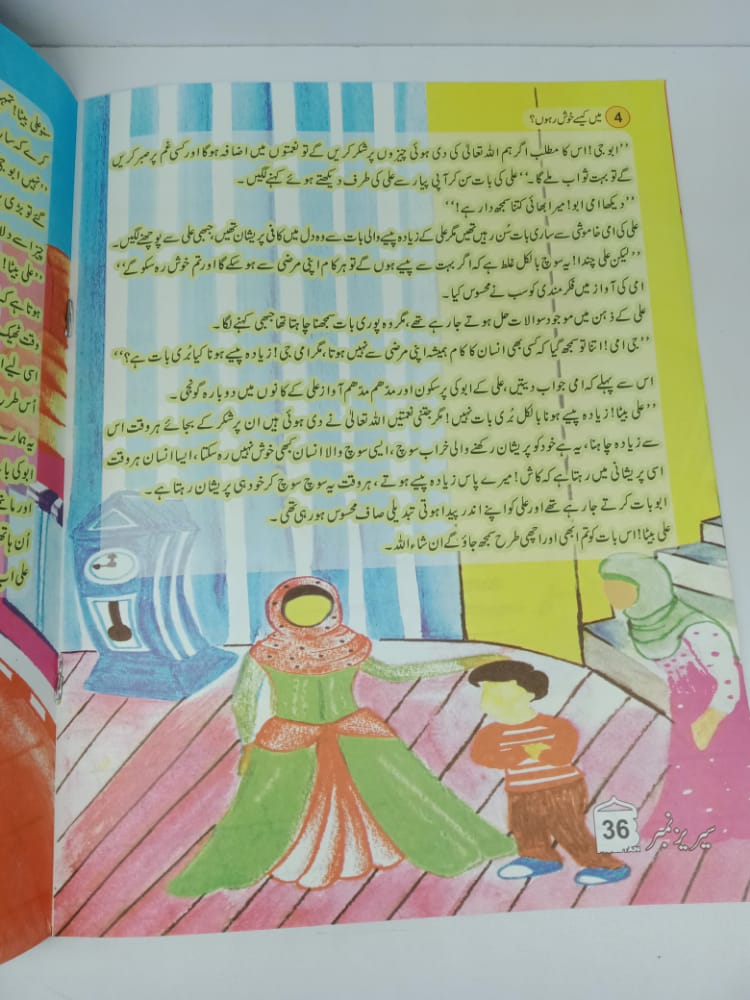 4 میں کیسے خوش رہوں؟
’’ابو جی! اس کا مطلب اگر ہم اللہ تعالیٰ کی دی ہوئی چیزوں پر شکر کریں گے تو نعمتوں میں اضافہ ہوگا اور کسی غم پر صبر کریں
گے تو بہت ثواب ملے گا۔‘‘ علی کی بات سن کر آپی پیار سے علی کی طرف دیکھتے ہوئے کہنے لگیں۔
’’دیکھا امی ابو! میرا بھائی کتنا سمجھ دار ہے!‘‘
علی کی امی خاموشی سے ساری بات سُن رہیں تھیں مگر علی کے زیادہ پیسے والی بات سے وہ دل میں کافی پریشان تھیں، جبھی علی سے پوچھنے لگیں۔
’’لیکن علی چندا! یہ سوچ بالکل غلط ہے کہ اگر بہت سے پیسے ہوں گے تو ہر کام اپنی مرضی سے ہو سکے گا اور تم خوش رہ سکو گے‘‘
امی کی آواز میں فکر مندی کو سب نے محسوس کیا۔
علی کے ذہن میں موجود سوالات حل ہوتے جا رہے تھے، مگر وہ پوری بات سمجھنا چاہتا تھا جبھی کہنے لگا۔
’’جی امی! اتنا تو سمجھ گیا کہ کسی بھی انسان کا کام ہمیشہ اپنی مرضی سے نہیں ہوتا، مگر امی جی! زیادہ پیسے ہونا کیا بُری بات ہے؟‘‘
اس سے پہلے کہ امی جواب دیتیں، علی کے ابو کی پرسکون اور مدھم مدھم آواز علی کے کانوں میں دوبارہ گونجی۔
’’علی بیٹا! زیادہ پیسے ہونا بالکل بُری بات نہیں! مگر جتنی نعمتیں اللہ تعالیٰ نے دی ہوئی ہیں ان پر شکر کے بجائے ہر وقت اس
سے زیادہ چاہنا، یہ ہے خود کو پریشان رکھنے والی خراب سوچ، ایسی سوچ والا انسان کبھی خوش نہیں رہ سکتا، ایسا انسان ہر وقت
اسی پریشانی میں رہتا ہے کہ کاش! میرے پاس زیادہ پیسے ہوتے، ہر وقت یہ سوچ سوچ کر خود ہی پریشان رہتا ہے۔
ابو بات کرتے جا رہے تھے اور علی کو اپنے اندر پیدا ہوتی تبدیلی صاف محسوس ہو رہی تھی۔
علی بیٹا! اس بات کو تم ابھی اور اچھی طرح سمجھ جاؤ گے ان شاء اللہ۔
سیریز نمبر 36